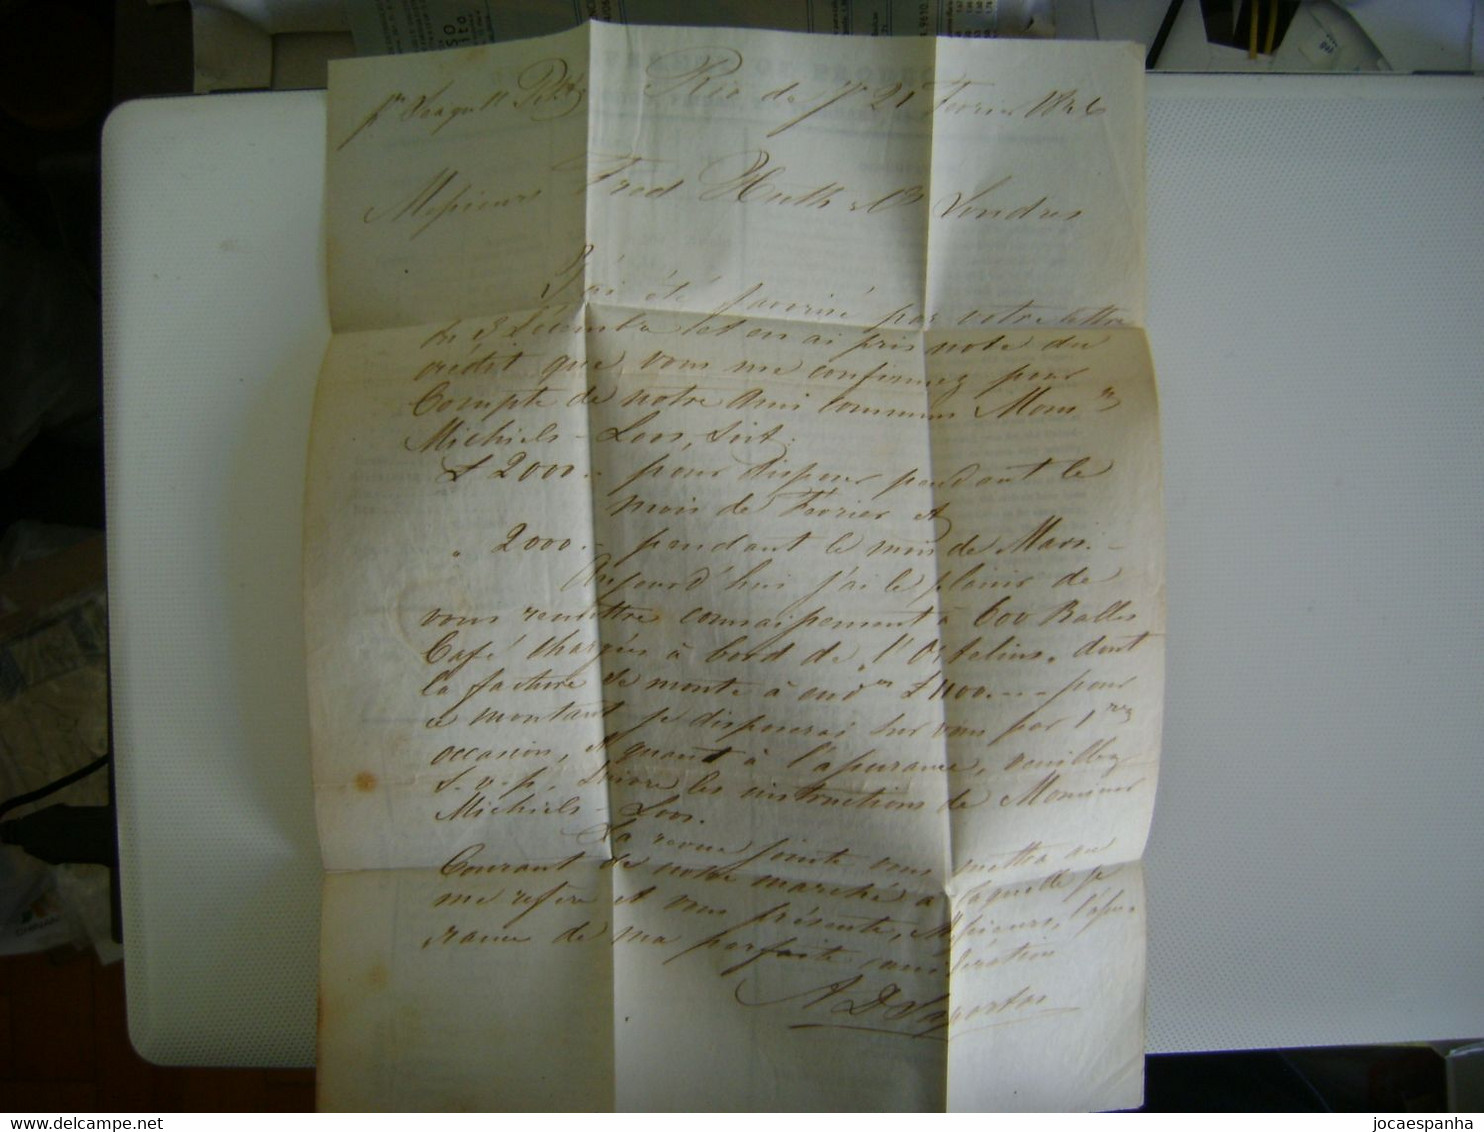 pr Seagull Pkt Rio de Jo 21 Fevrier 1846
Messieurs Fred Huth & Co Londres
J'ai été favorisé par votre lettre
du 3 Decembre et en ai pris note du
crédit que vous me confirmez pour
Compte de notre ami commun Monsr
Michiels-Loos, Soit:
£ 2000.- pour disposer pendant le
mois de Février et
" 2000.- pendant le mois de Mars.-
Aujourd'hui j'ai le plaisir de
vous remettre connaissement à 600 Balles
Café chargées à bord de "l'Ortelius" dont
la facture se monte à envn £ 1100.- - pour
ce montant je disposerai sur vous par 1re
occasion, et quant à l'assurance, veuillez
s. v. p. suivre les instructions de Monsieur
Michiels-Loos.
La revue jointe vous mettra au
Courant de notre marché à laquelle je
me refère et vous présente, Messieurs, l'assu-
rance de ma parfaite considération
A D Saportas
jocaespanha